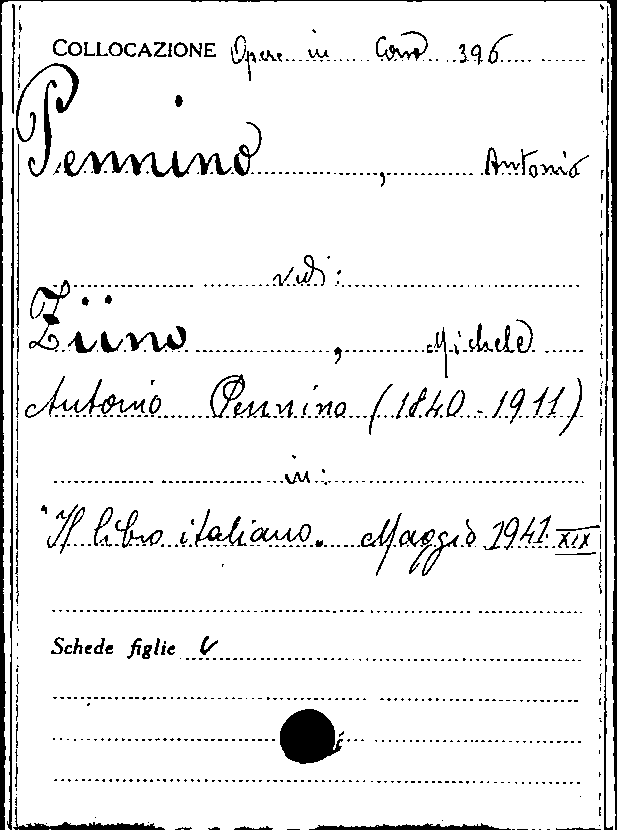 COLLOCAZIONE Opere in Corso 396
Pennino, Antonio
vedi:
Ziino, Michele
Antonio Pennino (1840-1911)
in:
"Il libro italiano„ Maggio 1941 XIX
Schede figlie